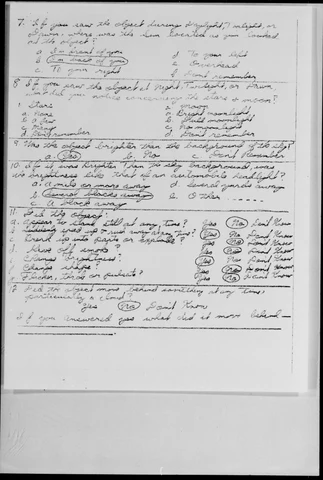 7. If you saw the object during Daylight, Twilight, or
Dawn, where was the Sun located as you looked
at the object?
a In front of you d To your left
b In back of you e Overhead
c To your right f Dont remember
8 If you saw the object at Night, Twilight, or Dawn,
what did you notice concerning the stars & moon?
1 Stars 2 moon
a None a Bright moonlight
b a few b Dull moonlight
c Many c No moonlight
d Dont remember d Dont remember
9 Was the object brighter than the background of the sky?
a. Yes b. No c Dont Remember
10. If it was brighter than the sky background was
the brightness like that of an automobile headlight?
a. A mile or more away d. Several yards away
b. Several blocks away e. Other ......
c A block away
11. Did the object:
a. Appear to stand still at any time? Yes No Dont Know
b. Suddenly speed up & rush away at any Time? Yes No Dont Know
c Break up into parts or explode? Yes No Dont Know
Give off smoke? Yes No Dont Know
Change brightness? Yes No Dont Know
Change shape? Yes No Dont Know
Flicker, throb or pulsate? Yes No Dont Know
12 Did the object move behind something at any time,
particularly a cloud?
Yes No Don't Know
If you answered yes what did it move behind